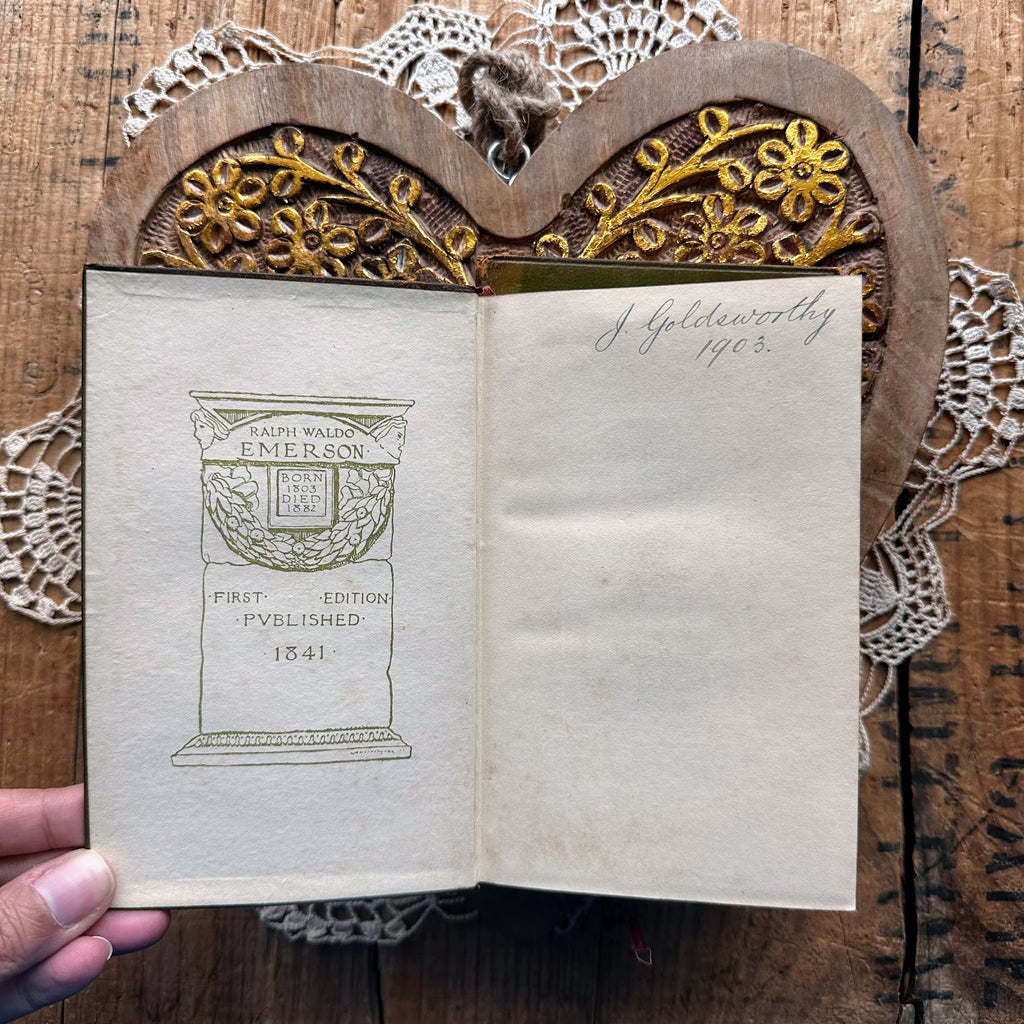 RALPH WALDO
EMERSON·
BORN
1803
DIED
1882
·FIRST· EDITION·
·PVBLISHED·
·1841·
J. Goldsworthy
1903.